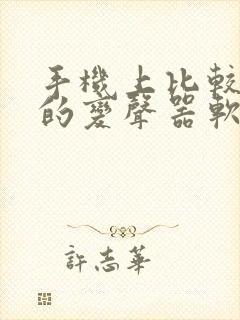 手機上比較
的變聲器軟
許志華